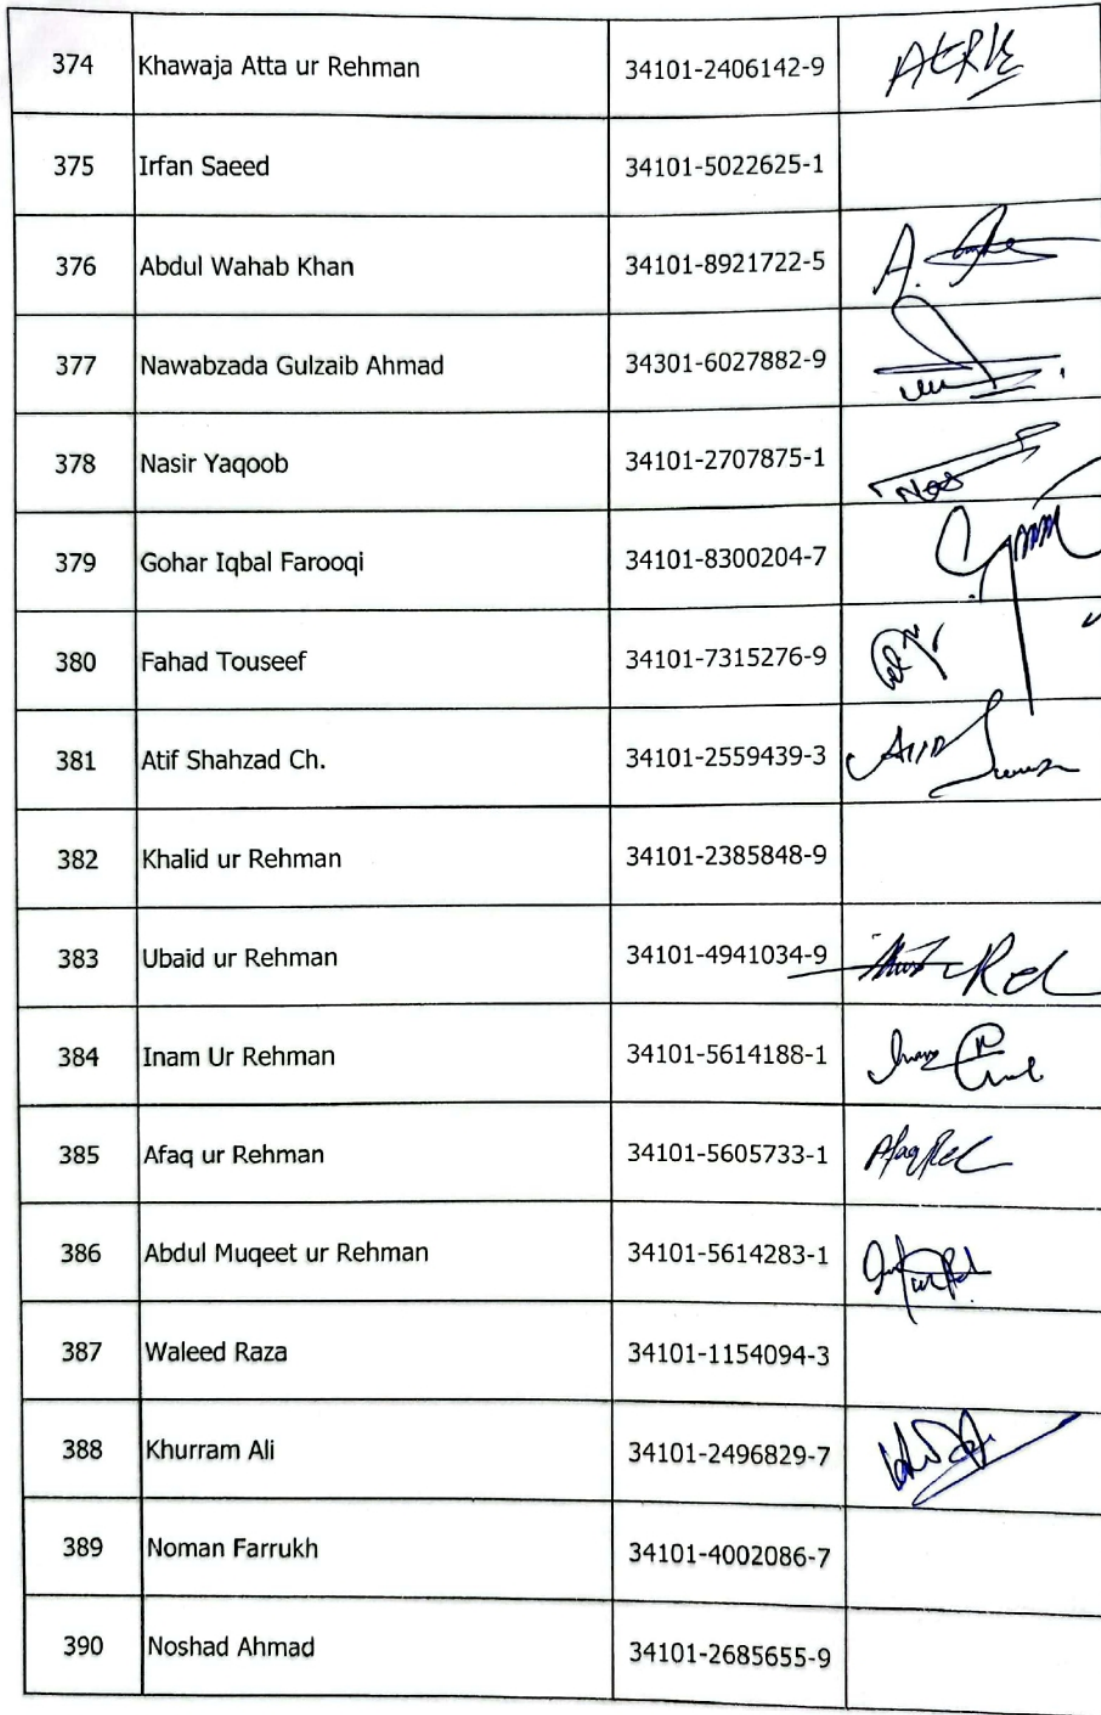 374 Khawaja Atta ur Rehman 34101-2406142-9
375 Irfan Saeed 34101-5022625-1
376 Abdul Wahab Khan 34101-8921722-5
377 Nawabzada Gulzaib Ahmad 34301-6027882-9
378 Nasir Yaqoob 34101-2707875-1
379 Gohar Iqbal Farooqi 34101-8300204-7
380 Fahad Touseef 34101-7315276-9
381 Atif Shahzad Ch. 34101-2559439-3
382 Khalid ur Rehman 34101-2385848-9
383 Ubaid ur Rehman 34101-4941034-9
384 Inam Ur Rehman 34101-5614188-1
385 Afaq ur Rehman 34101-5605733-1
386 Abdul Muqeet ur Rehman 34101-5614283-1
387 Waleed Raza 34101-1154094-3
388 Khurram Ali 34101-2496829-7
389 Noman Farrukh 34101-4002086-7
390 Noshad Ahmad 34101-2685655-9